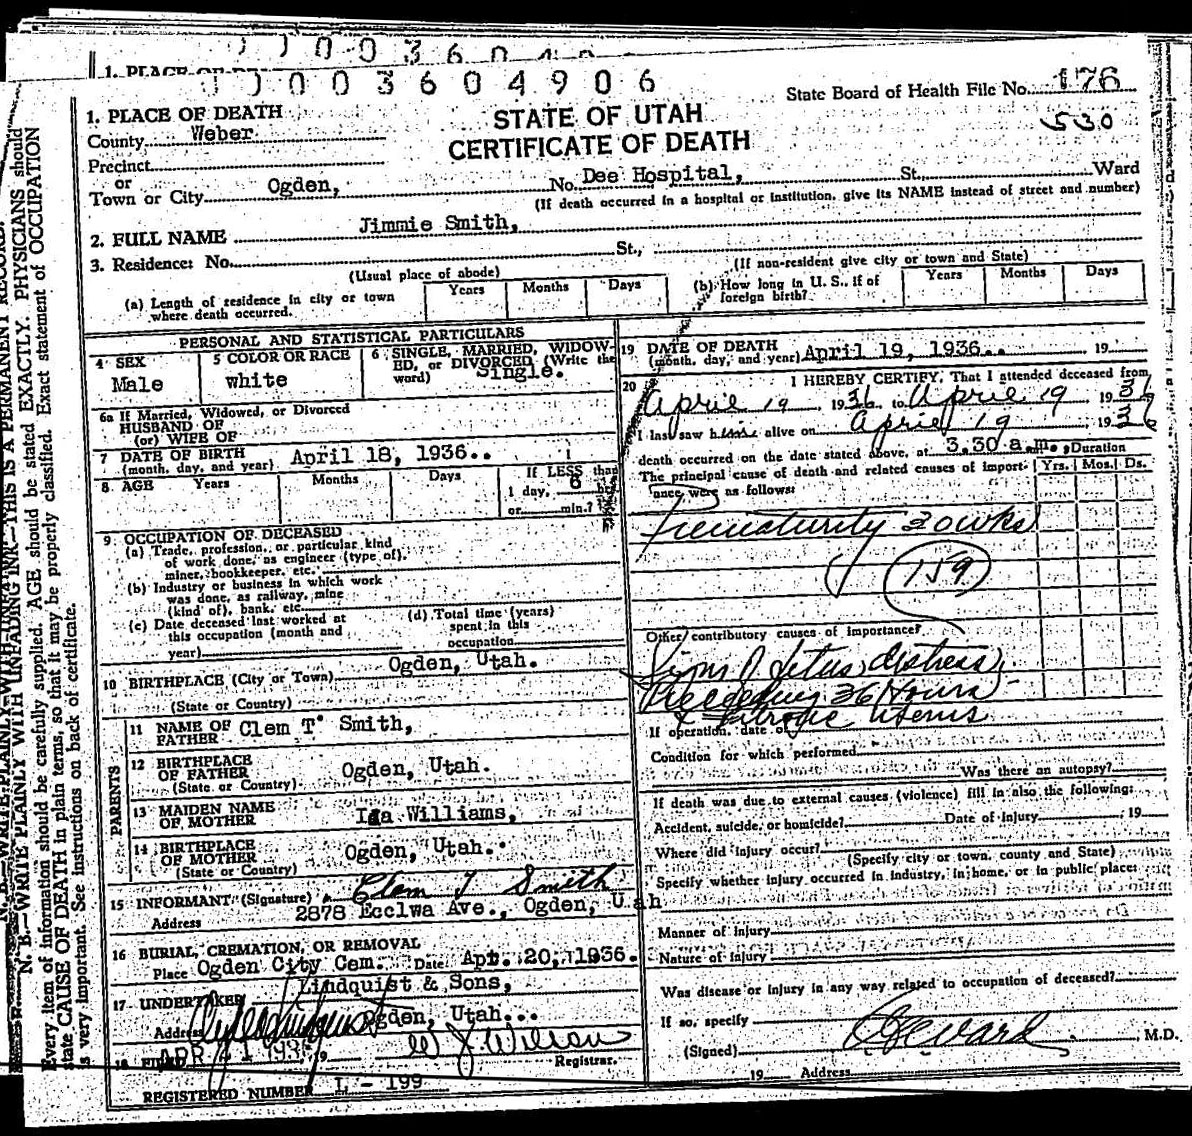 1. PLACE OF DEATH
1003604906
State Board of Health File No. 176
1. PLACE OF DEATH
STATE OF UTAH
530
County Weber
CERTIFICATE OF DEATH
Precinct
or
Town or City Ogden, No. Dee Hospital, St., Ward
(If death occurred in a hospital or institution, give its NAME instead of street and number)
2. FULL NAME Jimmie Smith,
3. Residence: No. St.,
(Usual place of abode)
(If non-resident give city or town and State)
(a) Length of residence in city or town where death occurred. Years Months Days
(b) How long in U. S., if of foreign birth? Years Months Days
PERSONAL AND STATISTICAL PARTICULARS
4 SEX
Male
5 COLOR OR RACE
white
6 SINGLE, MARRIED, WIDOW-
ED, or DIVORCED (Write the
word) Single.
6a If Married, Widowed, or Divorced
HUSBAND OF
(or) WIFE OF
7 DATE OF BIRTH
(month, day, and year) April 18, 1936..
8 AGE Years Months Days
If LESS than
1 day, 6 hrs
or min.?
9 OCCUPATION OF DECEASED
(a) Trade, profession, or particular kind
of work done, as engineer (type of),
miner, bookkeeper, etc.
(b) Industry or business in which work
was done, as railway, mine
(kind of), bank, etc.
(c) Date deceased last worked at
this occupation (month and
year)
(d) Total time (years)
spent in this
occupation
10 BIRTHPLACE (City or Town) Ogden, Utah.
(State or Country)
PARENTS
11 NAME OF
FATHER Clem T. Smith,
12 BIRTHPLACE
OF FATHER Ogden, Utah.
(State or Country)
13 MAIDEN NAME
OF MOTHER Ida Williams,
14 BIRTHPLACE
OF MOTHER Ogden, Utah.
(State or Country)
15 INFORMANT (Signature) Clem T Smith
Address 2878 Ecclwa Ave., Ogden, Utah
16 BURIAL, CREMATION, OR REMOVAL
Place Ogden City Cem. Date Apr. 20, 1936.
17 UNDERTAKER Lindquist & Sons,
Address Ogden, Utah...
18 FILED APR 21 1936 19 W J Wilson
Registrar.
REGISTERED NUMBER L - 199
19 DATE OF DEATH
(month, day, and year) April 19, 1936.. 19
20 I HEREBY CERTIFY, That I attended deceased from
April 19, 1936, to April 19 1936
I last saw him alive on April 19 1936
death occurred on the date stated above, at 3.30 a.m., Duration
The principal cause of death and related causes of import-
ance were as follows: Yrs. Mos. Ds.
Prematurity 30 wks
159
Other contributory causes of importance?
Signs of fetus distress
Preceeding 36 Hours
uterus
If operation, date of
Condition for which performed
Was there an autopsy?
If death was due to external causes (violence) fill in also the following:
Accident, suicide, or homicide? Date of injury 19
Where did injury occur?
(Specify city or town, county and State)
Specify whether injury occurred in industry, in home, or in public place:
Manner of Injury
Nature of Injury
Was disease or injury in any way related to occupation of deceased?
If so, specify
(Signed) , M.D.
19 Address
N. B.—WRITE PLAINLY WITH UNFADING INK—THIS IS A PERMANENT RECORD.
Every item of information should be carefully supplied. AGE should be stated EXACTLY. PHYSICIANS should
state CAUSE OF DEATH in plain terms, so that it may be properly classified. Exact statement of OCCUPATION
is very important. See instructions on back of certificate.